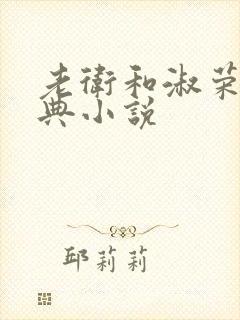 老衛和淑荣
典小說
邱莉莉